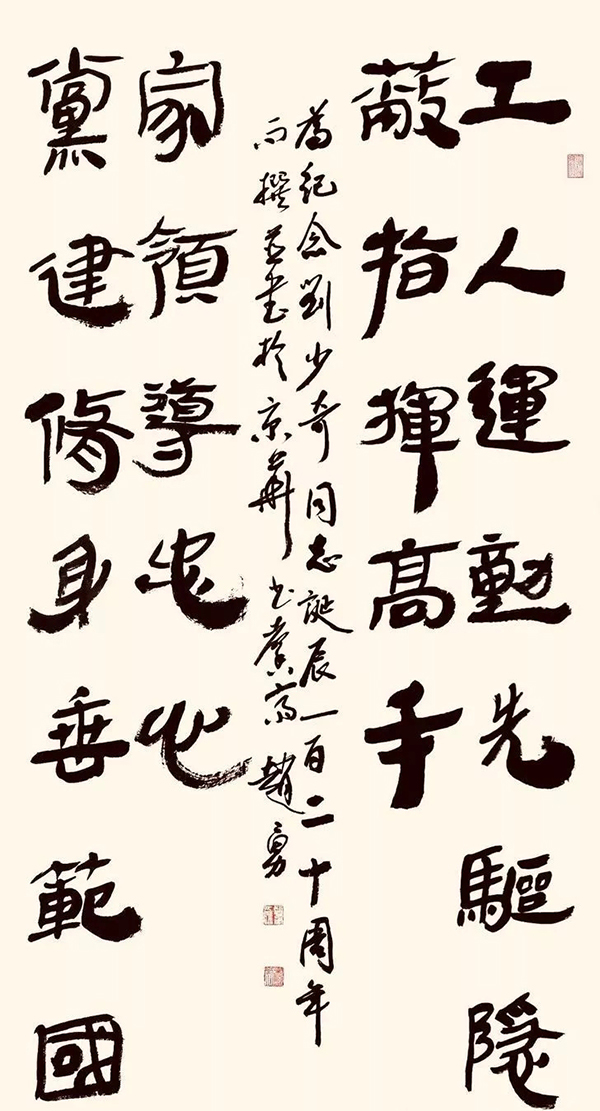 工人運勭先驅隱
蔽指揮高手
黨建脩身垂範國
家領導忠心
為紀念劉少奇同志誕辰一百二十周年
而撰並書於京華 齋 趙勇